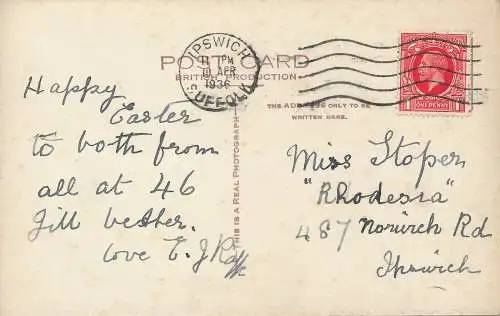 POST CARD
BRITISH PRODUCTION
IPSWICH
11 PM
10 APR
1936
SUFFOLK
ONE PENNY
THE ADDRESS ONLY TO BE
WRITTEN HERE.
THIS IS A REAL PHOTOGRAPH
Happy
Easter
to both from
all at 46
love E. J.
Miss Stoper
"Rhodesia"
487 Norwich Rd
Ipswich